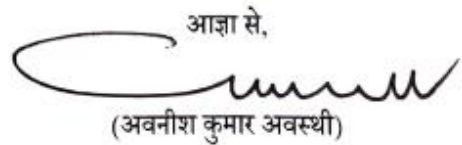 आज्ञा से,
(अवनीश कुमार अवस्थी)